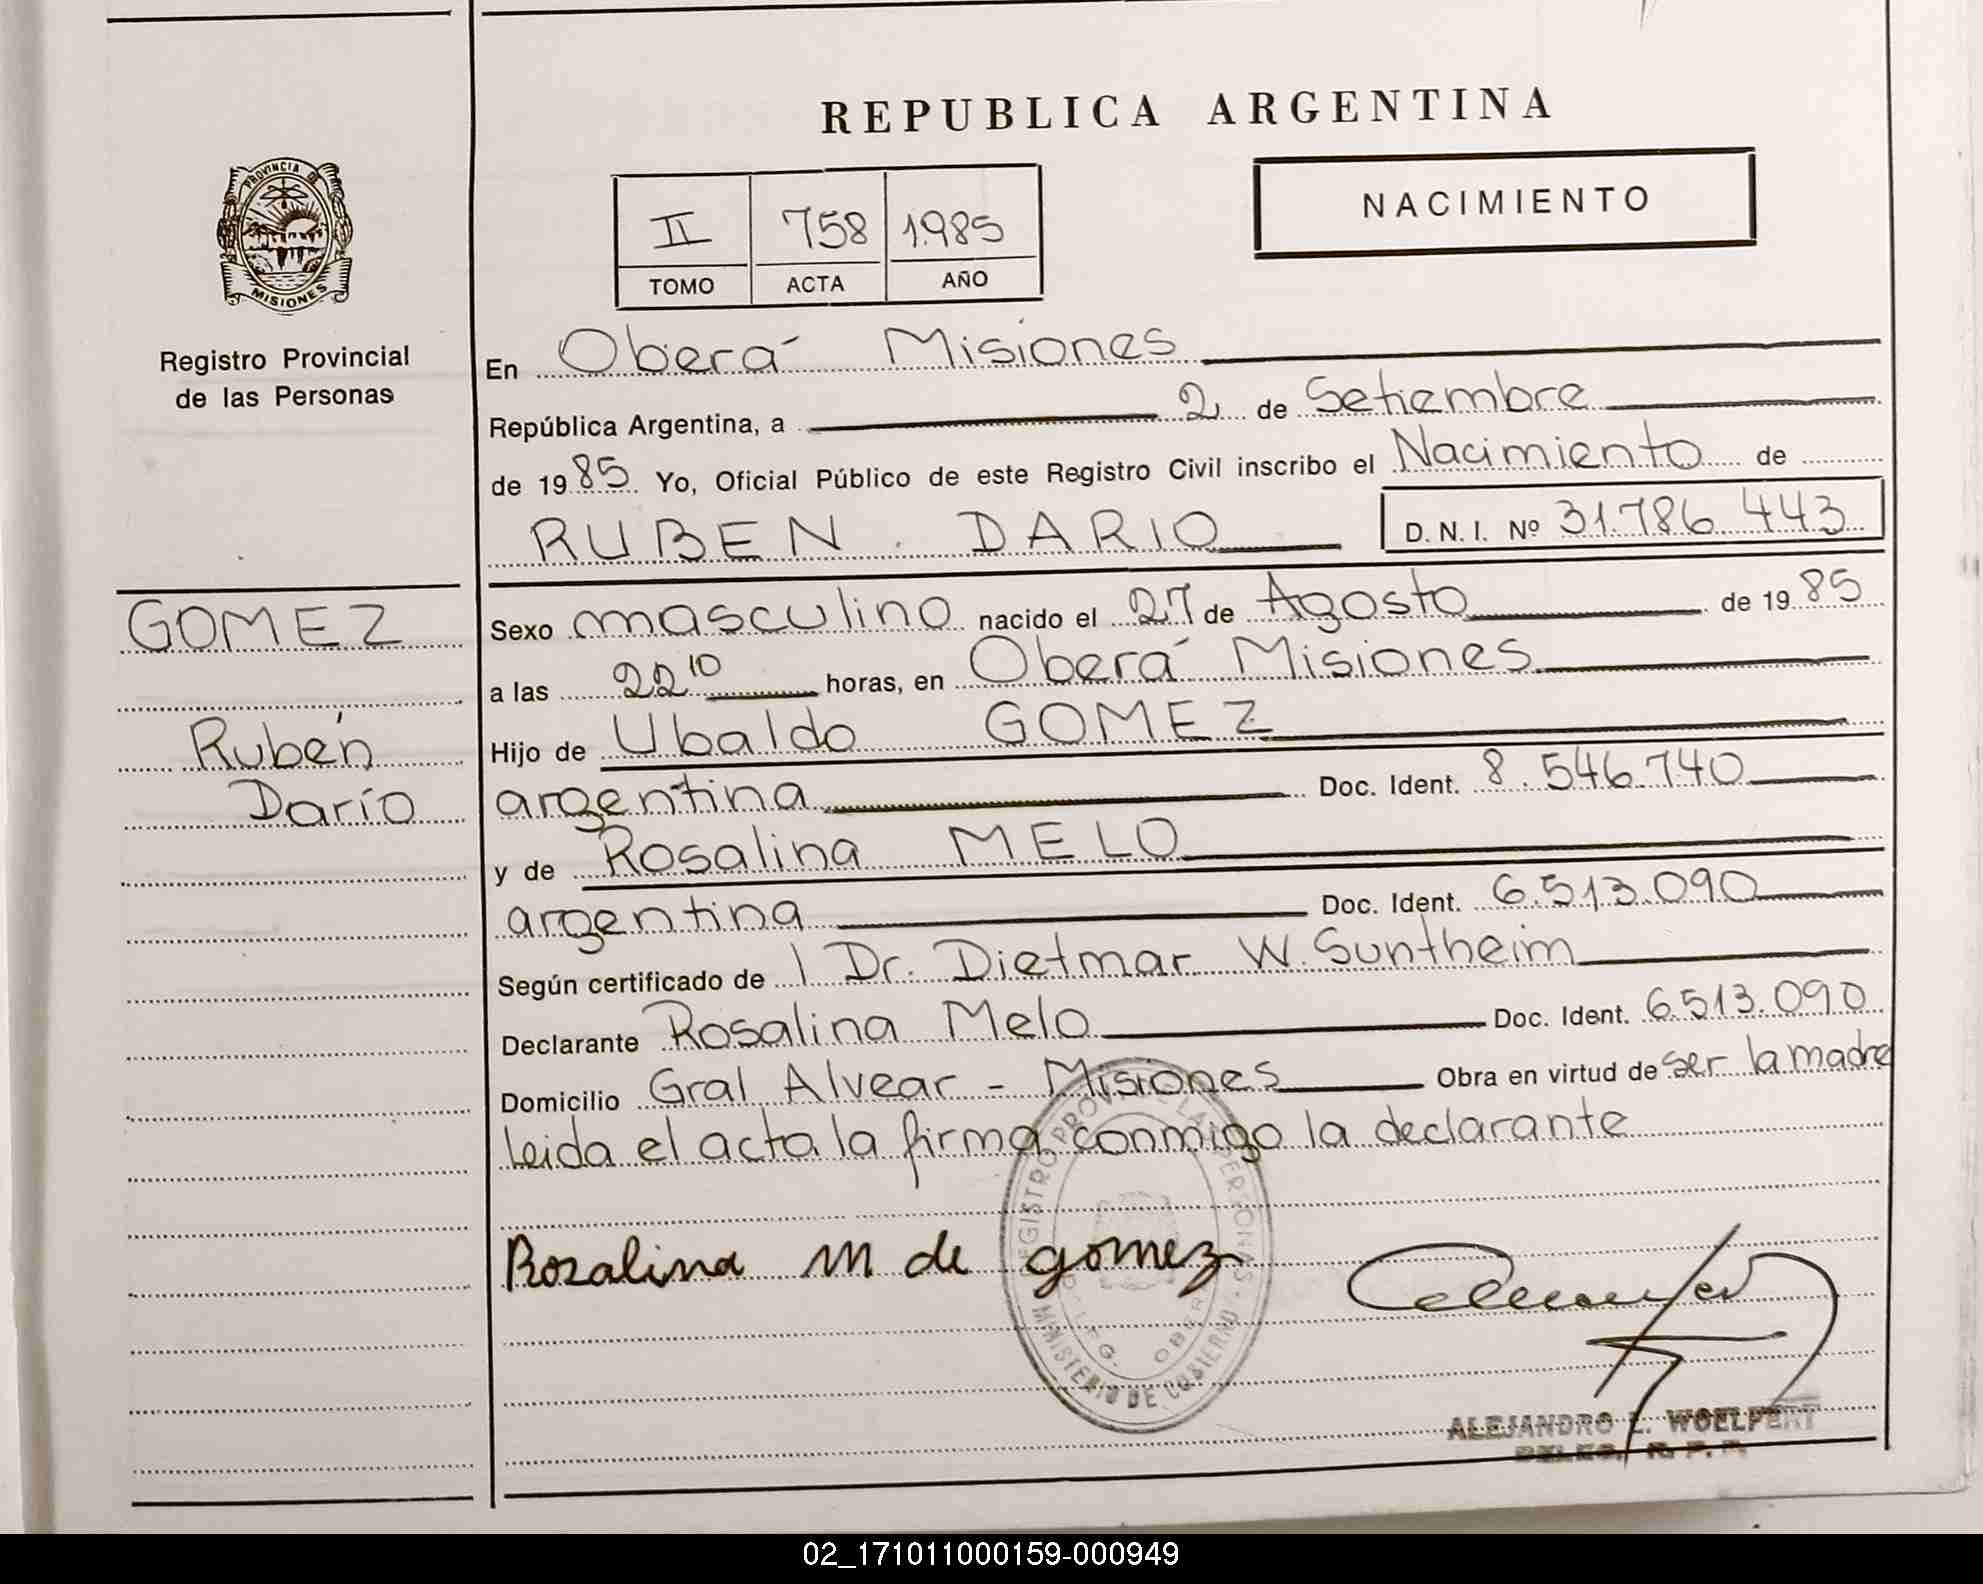 REPUBLICA ARGENTINA
NACIMIENTO
II 758 1.985
TOMO ACTA AÑO
PROVINCIA DE
MISIONES
Registro Provincial
de las Personas
En Oberá Misiones
República Argentina, a 2 de Setiembre
de 1985 Yo, Oficial Público de este Registro Civil inscribo el Nacimiento de
RUBEN DARIO D. N. I. Nº 31.786.443
GOMEZ
Rubén
Darío
Sexo masculino nacido el 27 de Agosto de 1985
a las 22 10 horas, en Oberá Misiones
Hijo de Ubaldo GOMEZ
argentina Doc. Ident. 8.546.740
y de Rosalina MELO
argentina Doc. Ident. 6.513.090
Según certificado de l Dr. Dietmar W. Suntheim
Declarante Rosalina Melo Doc. Ident. 6.513.090
Domicilio Gral Alvear - Misiones Obra en virtud de ser la madre
leida el acta la firma conmigo la declarante
Rozalina m de gomez
MINISTERIO DE GOBIERNO
ALEJANDRO E. WOELFERT
DELEG. R. P. P.
02_171011000159-000949